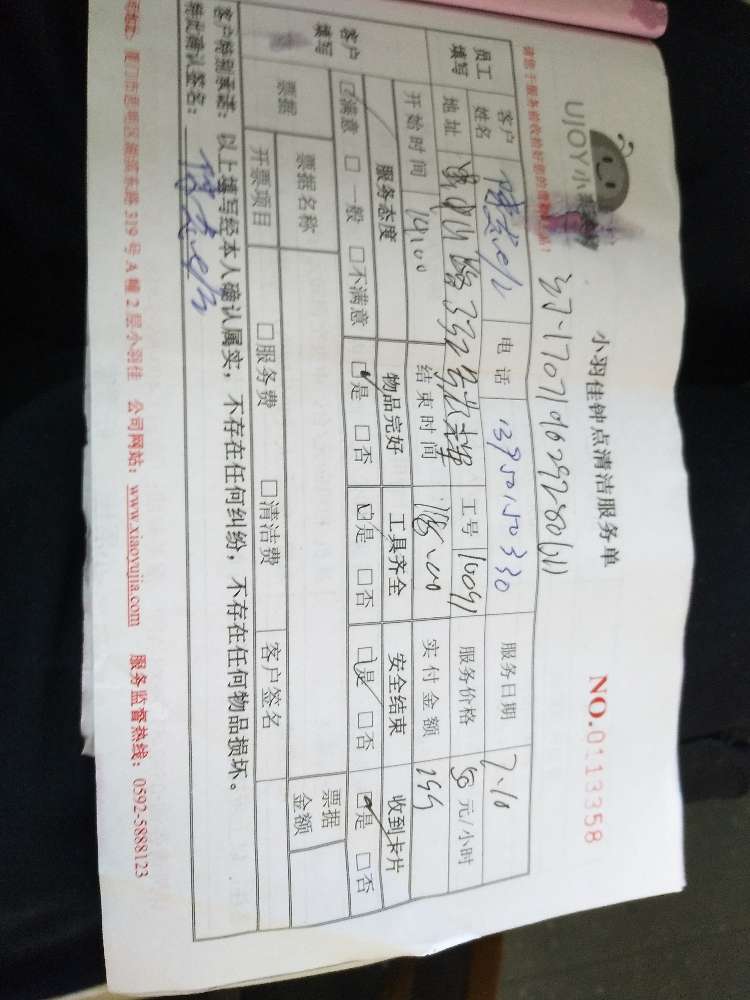 UJOY小羽佳
小羽佳钟点清洁服务单
NO.0113358
请您于服务前收拾好您的贵重物品!
员工填写
客户姓名
电话 13950150330
服务日期 7.10
地址
工号 10091
服务价格 50 元/小时
开始时间 14:00
结束时间
实付金额 199
客户填写
服务态度 物品完好 工具齐全 安全结束 收到卡片
☑满意 □一般 □不满意 ☑是 □否 ☑是 □否 ☑是 □否 ☑是 □否
票据
票据名称
票据金额
开票项目 □服务费 □清洁费 客户签名
客户特别承诺:以上填写经本人确认属实,不存在任何纠纷,不存在任何物品损坏。
特此确认签名:
319号A幢2层小羽佳 公司网站:www.xiaoyujia.com 服务监督热线:0592-5888123